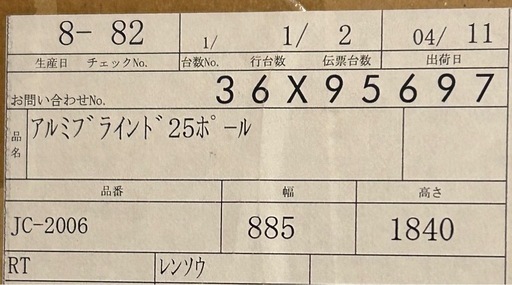 8- 82 1/ 1/ 2 04/ 11
生産日 チェックNo. 台数No. 行台数 伝票台数 出荷日
お問い合わせNo. 36X95697
品名 ｱﾙﾐﾌﾞﾗｲﾝﾄﾞ25ﾎﾟｰﾙ
品番 幅 高さ
JC-2006 885 1840
RT ﾚﾝｿｳ